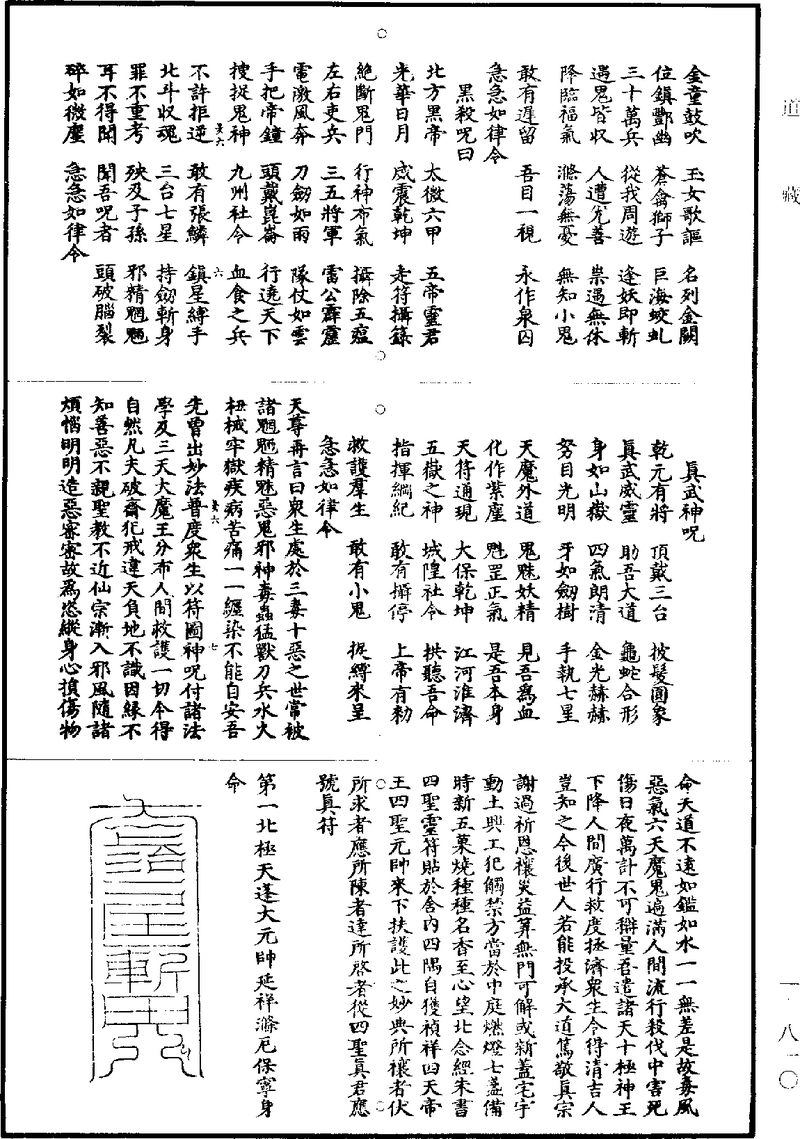 道藏
金童鼓吹 玉女歌謳 名列金闕
位鎮酆幽 蒼禽獅子 巨海蛟虬
三十萬兵 從我周遊 逢妖即斬
遇鬼皆収 人遭先善 祟遇無休
降臨福氣 滌蕩無憂 無知小鬼
敢有遲留 吾目一視 永作泉囚
急急如律令
黑殺呪曰
北方黑帝 太微六甲 五帝靈君
光華日月 威震乾坤 走符攝籙
絕斷鬼門 行神布氣 攝除五瘟
左右吏兵 三五將軍 雷公霹靂
電激風奔 刀劒如雨 隊仗如雲
手把帝鐘 頭戴崑崙 行遶天下
搜捉鬼神 九州社令 血食之兵
不許拒逆 敢有張鱗 鎮星縛手
北斗収魂 三台七星 持劒斬身
罪不重考 殃及子孫 邪精魍魎
耳不得聞 聞吾呪者 頭破腦裂
碎如微塵 急急如律令
眞武神呪
乾元有將 頂戴三台 披髮圓象
眞武威靈 助吾大道 龜蛇合形
身如山嶽 四氣朗清 金光赫赫
努目光明 牙如劒樹 手執七星
天魔外道 鬼魅妖精 見吾為血
化作紫塵 魁罡正氣 是吾本身
天符通現 大保乾坤 江河淮濟
五嶽之神 城隍社令 拱聽吾命
指揮綱紀 敢有攝停 上帝有勑
救護羣生 敢有小鬼 捉縛來呈
急急如律令
天尊再言曰衆生處於三毒十惡之世常被
諸魍魎精魅惡鬼邪神毒蟲猛獸刀兵水火
杻械牢獄疾病苦痛一一纏染不能自安吾
先曾出妙法普度衆生以符圖神呪付諸法
學及三天大魔王分布人間救護一切令得
自然凡夫破齋犯戒違天負地不識因緣不
知善惡不親聖教不近仙宗漸入邪風隨諸
煩惱明明造惡審審故為恣縱身心損傷物
命天道不遠如鑑如水一一無差是故毒風
惡氣六天魔鬼遍滿人間流行殺伐中害死
傷日夜萬計不可辯量吾遣諸天十極神王
下降人間廣行救度拯濟衆生令得清吉人
豈知之今後世人若能投承大道篤敬眞宗
謝過祈恩禳災益算無門可解或新蓋宅宇
動土興工犯觸禁方當於中庭燃燈七盞備
時新五菓燒種種名香至心望北念經朱書
四聖靈符貼於舍内四隅自獲禎祥四天帝
王四聖元帥來下扶護此之妙典所禳者伏
所求者應所陳者達所啓者從四聖眞君應
號眞符
第一北極天蓬大元帥延祥滌厄保寧身
命
一·八一〇